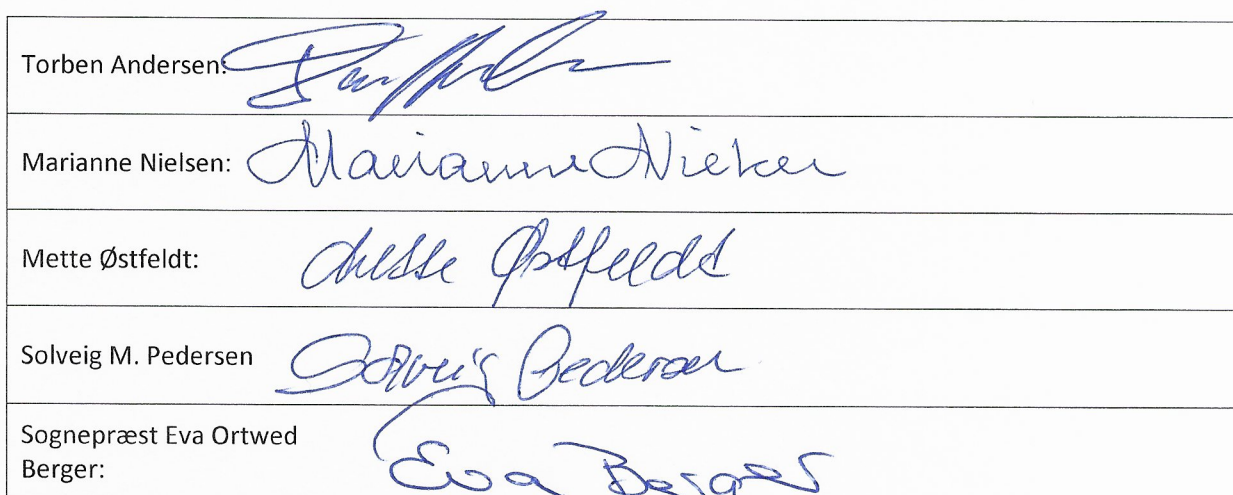 Torben Andersen:
Marianne Nielsen: Marianne Nielsen
Mette Østfeldt: Mette Østfeldt
Solveig M. Pedersen Solveig Pedersen
Sognepræst Eva Ortwed
Berger: Eva Berger